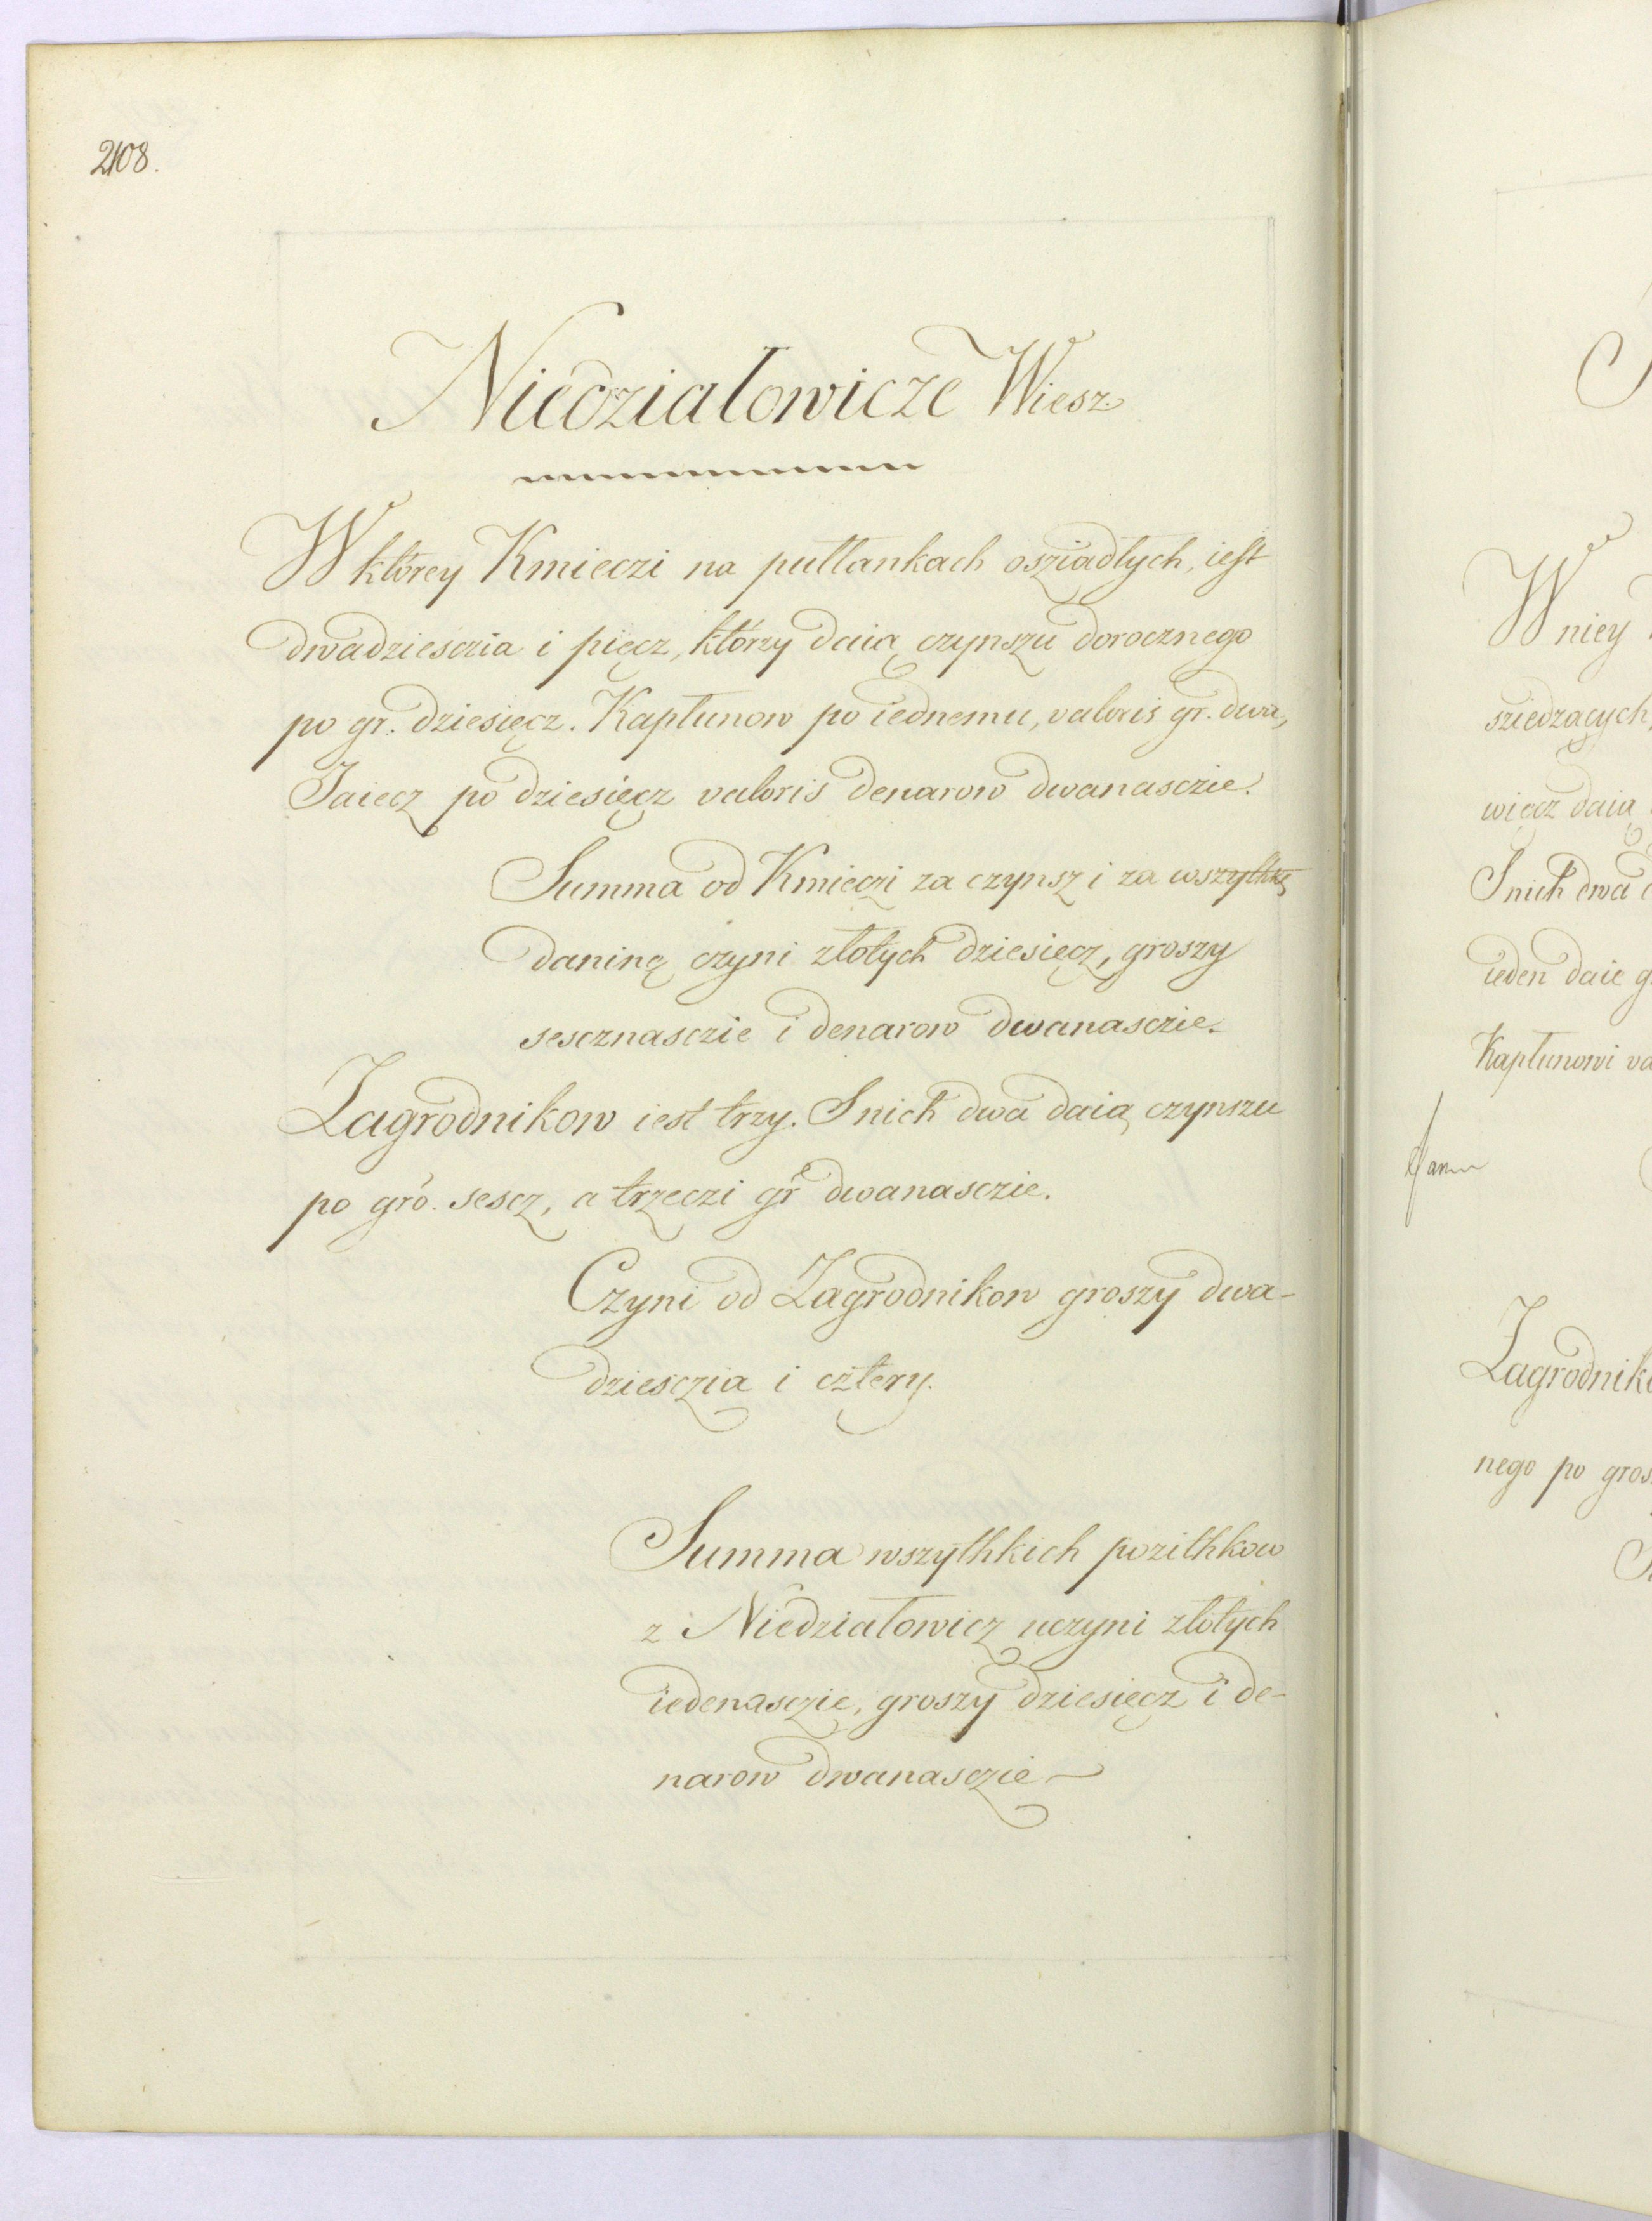 2108.
Niedziałowicze Wiesz.
W którey Kmieczi na pułłankach osziadłych, iest
dwadziesczia i pięcz, którzy daią czynszu dorocznego
po gr. dziesięcz. Kapłunow po iednemu, valoris gr. dwa,
Jaiecz po dziesięcz valoris denarow dwanasczie.
Summa od Kmieczi za czynsz i za wszythkę
daninę czyni złotych dziesięcz, groszy
sescznasczie i denarow dwanasczie.
Zagrodnikow iest trzy. S nich dwa daią czynszu
po gro. sescz, a trzeczi gr dwanasczie.
Czyni od Zagrodnikow groszy dwa-
dziesczia i cztery.
Summa wszythkich pozithkow
z Niedziałowicz uczyni złotych
iedenasczie, groszy dziesięcz i de-
narow dwanasczie
W niey
sziedzących,
więcz daią
S nich dwa
ieden daie g
Kapłunowi va
Zagrodniko
nego po gros